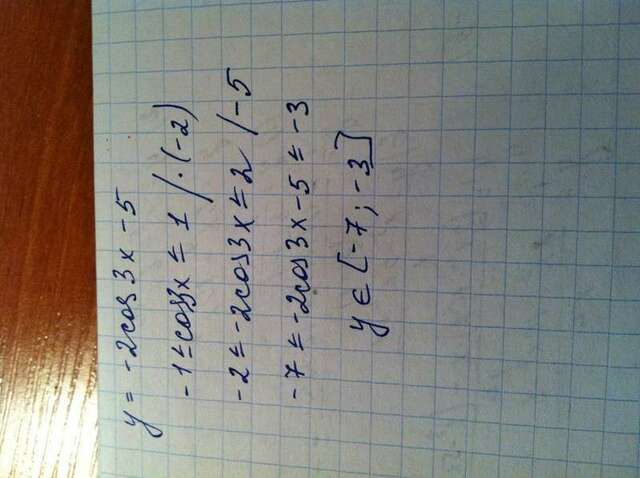 y = -2cos 3x - 5
-1 ≤ cos3x ≤ 1 / · (-2)
-2 ≤ -2cos3x ≤ 2 / -5
-7 ≤ -2cos3x - 5 ≤ -3
y ∈ [-7; -3]